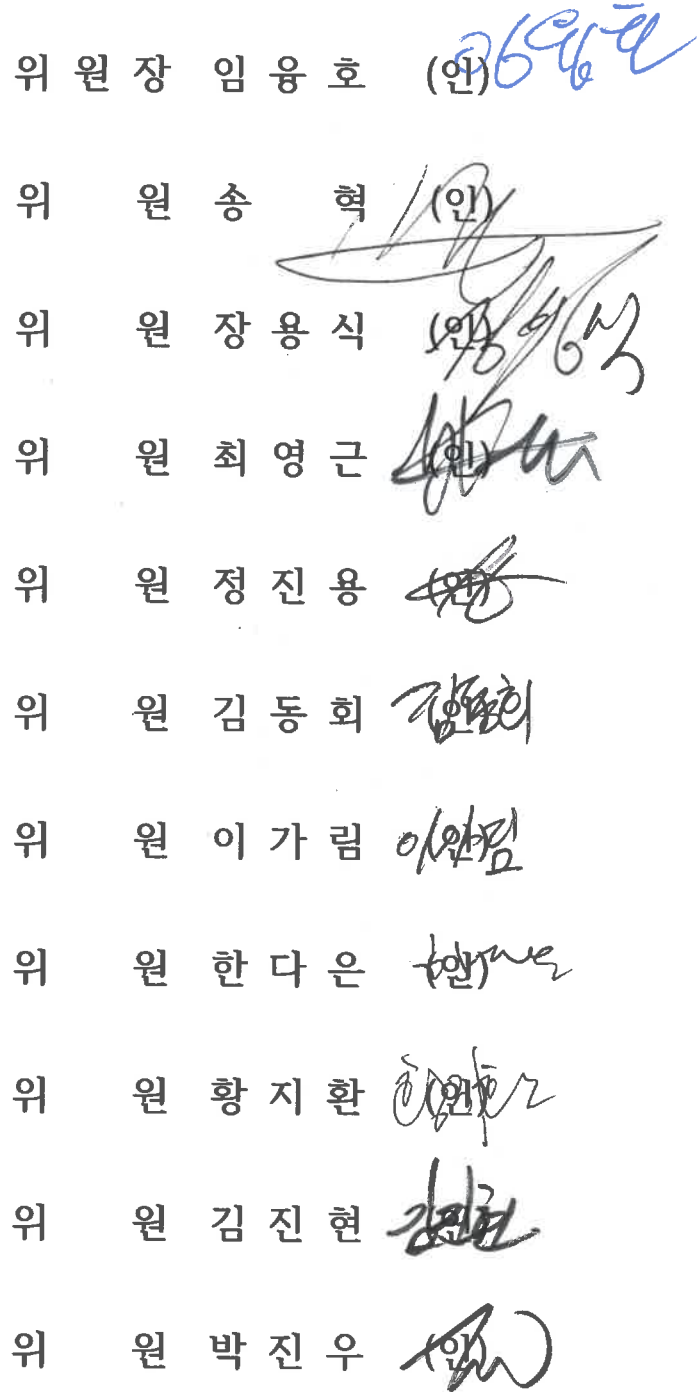 위 원 장 임 융 호 (인)
위 원 송 혁 (인)
위 원 장 용 식 (인)
위 원 최 영 근 (인)
위 원 정 진 용 (인)
위 원 김 동 회 김동회
위 원 이 가 림 (인)
위 원 한 다 은 (인)
위 원 황 지 환 (인)
위 원 김 진 현 김진현
위 원 박 진 우 (인)